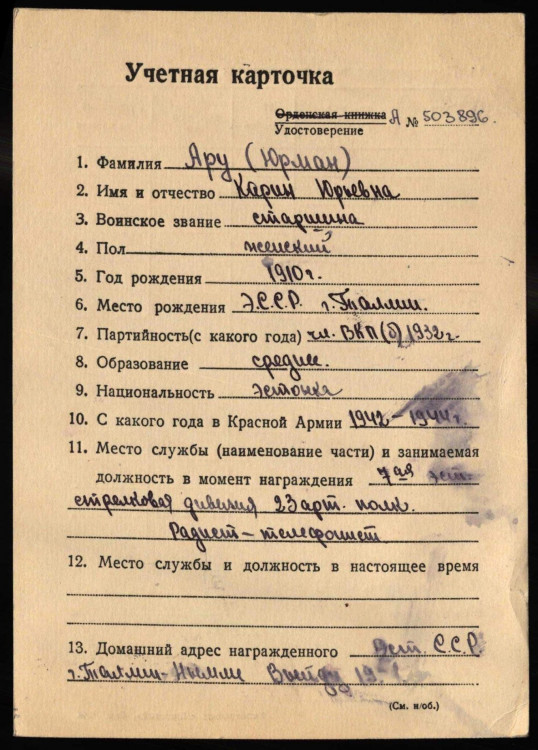 Учетная карточка
Орденская книжка А № 503896.
Удостоверение
1. Фамилия Ару (Юрман)
2. Имя и отчество Карин Юрьевна
3. Воинское звание старшина
4. Пол женский
5. Год рождения 1910 г.
6. Место рождения Э.С.С.Р. г. Таллин.
7. Партийность(с какого года) чл. ВКП(б) 1932 г.
8. Образование средн.
9. Национальность эстонка
10. С какого года в Красной Армии 1942 – 1944 г.
11. Место службы (наименование части) и занимаемая
должность в момент награждения 7ая эст.
стрелковая дивизия 23 арт. полк.
Радист – телефонист
12. Место службы и должность в настоящее время
13. Домашний адрес награжденного Эст. С.С.Р.
г. Таллин-Нымме
(См. н/об.)